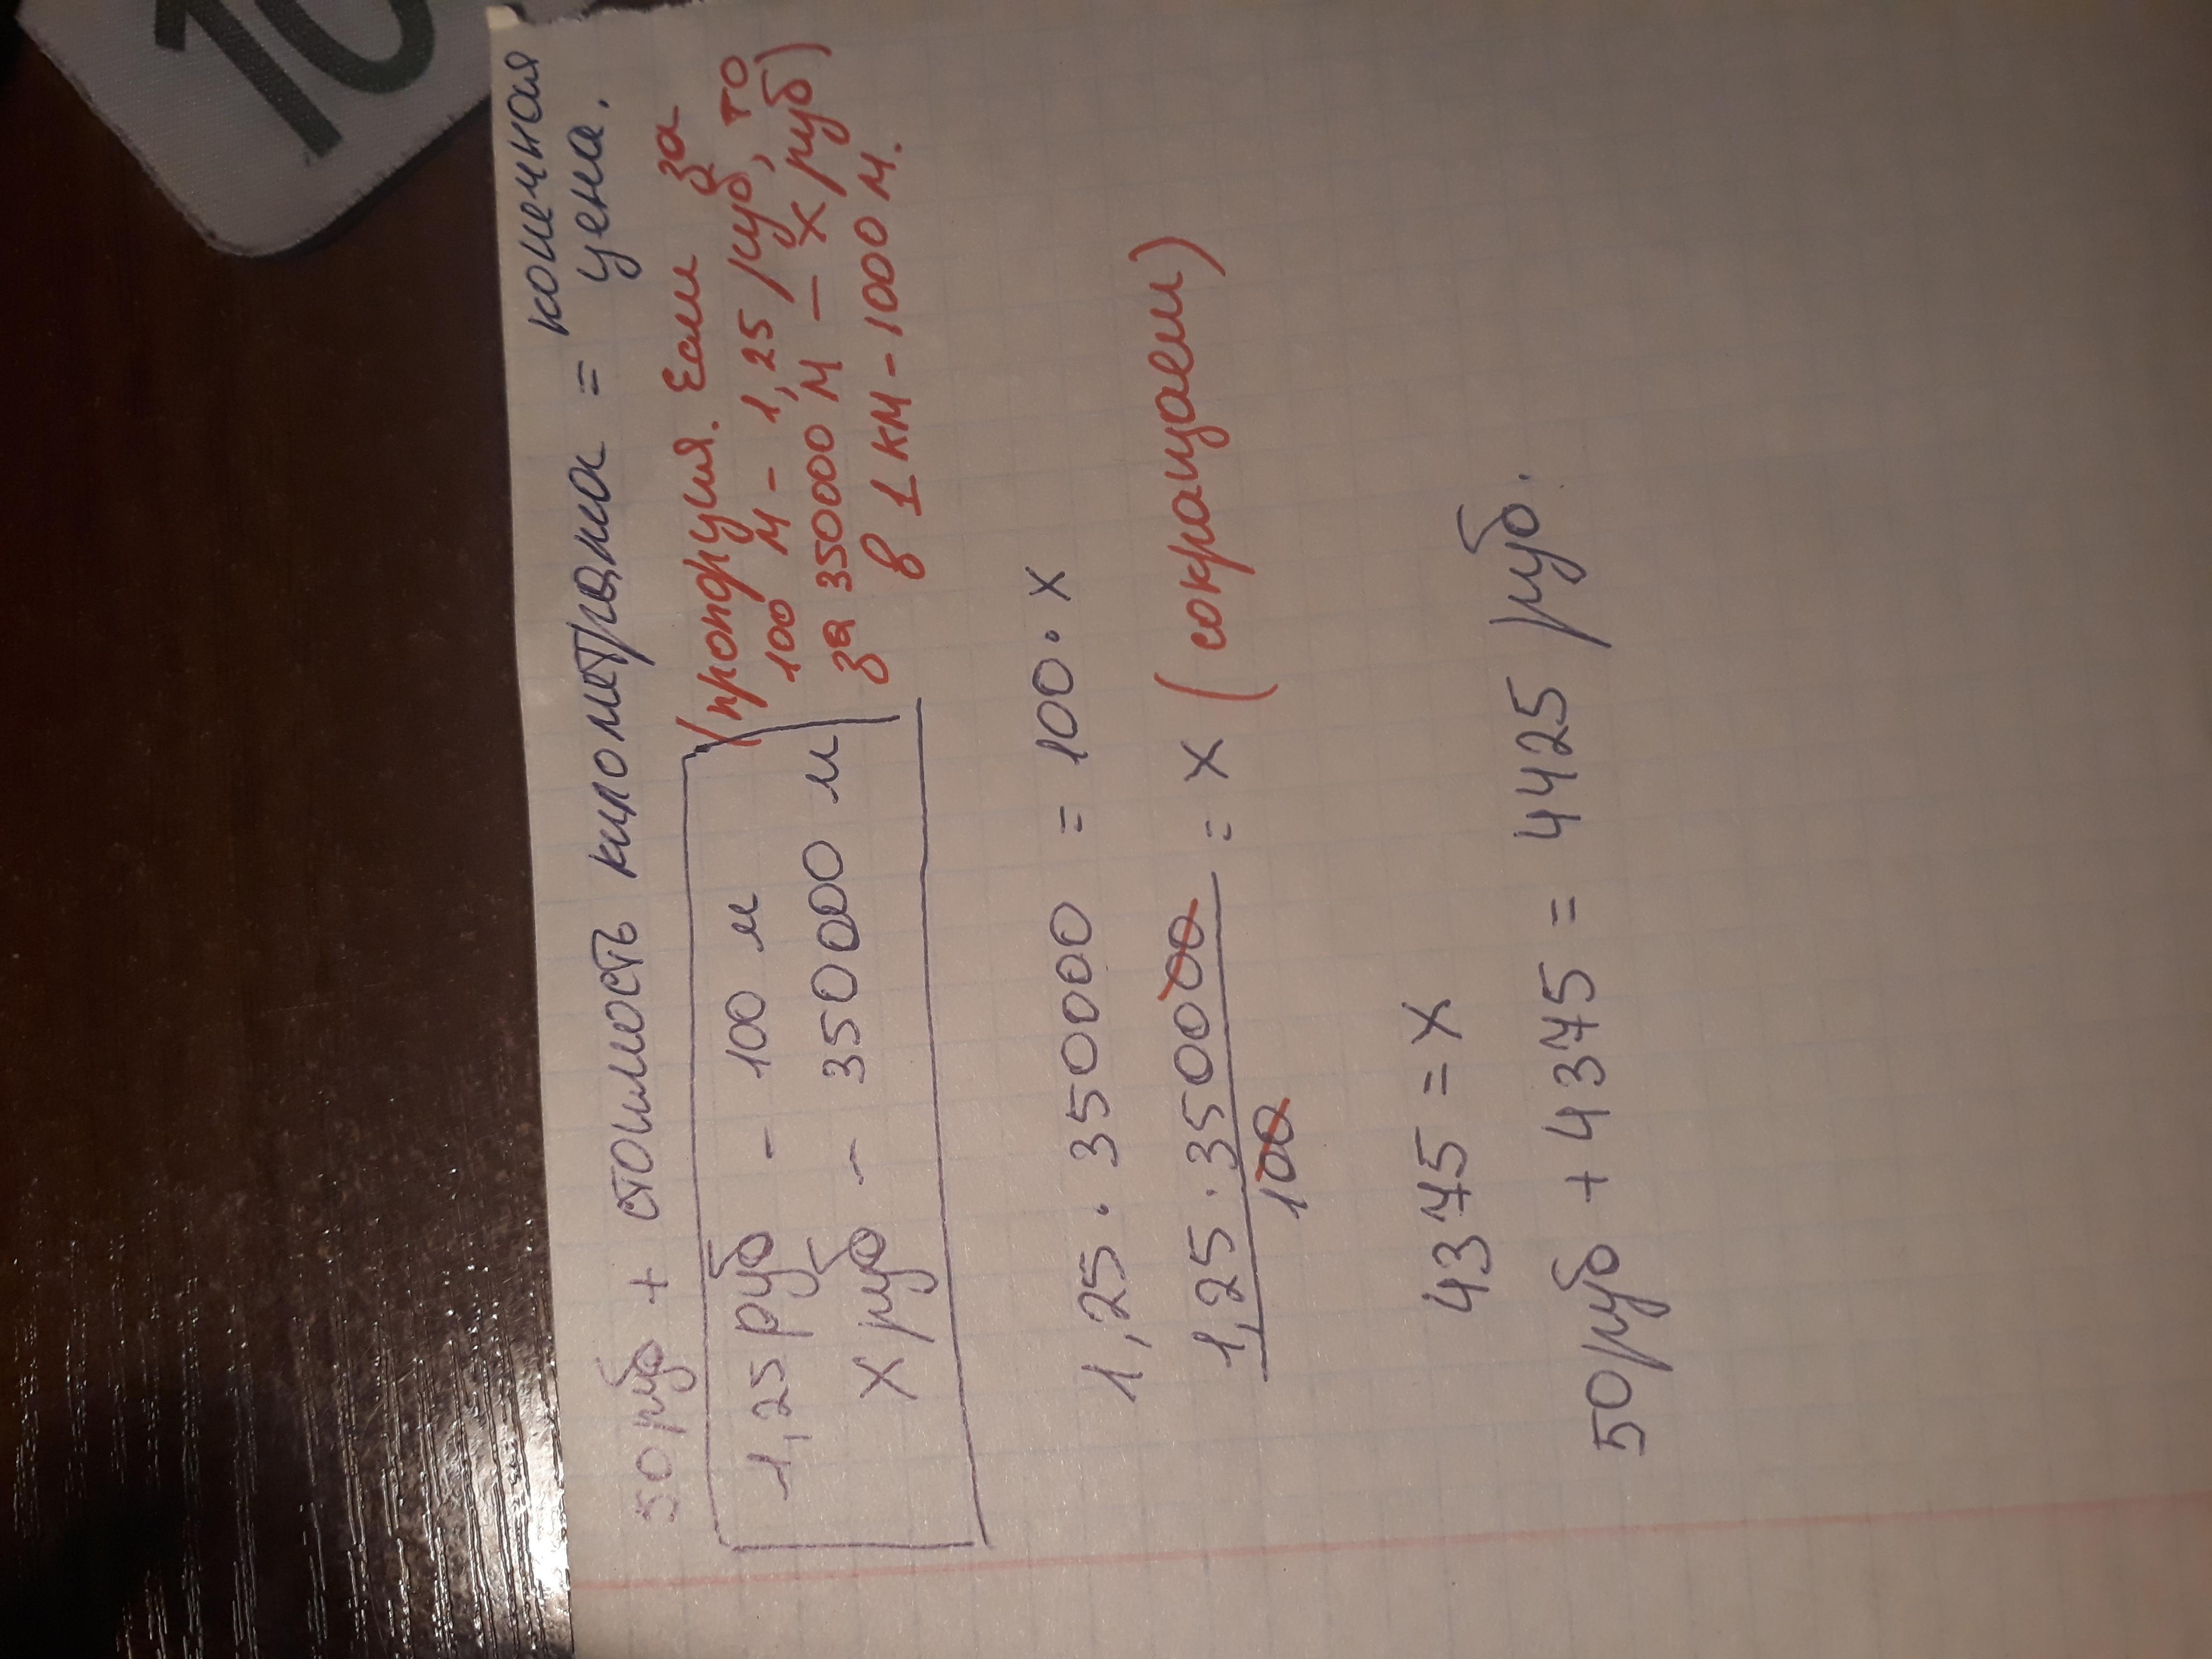 10
50 руб + стоимость километража = конечная
цена.
1,25 руб - 100 м
х руб - 350000 м
(пропорция. Если за
100 м - 1,25 руб, то
за 350000 м - х руб)
в 1 км - 1000 м.
1,25 · 350000 = 100 · х
1,25 · 350000
100
= х (сокращаем)
4375 = х
50 руб + 4375 = 4425 руб.